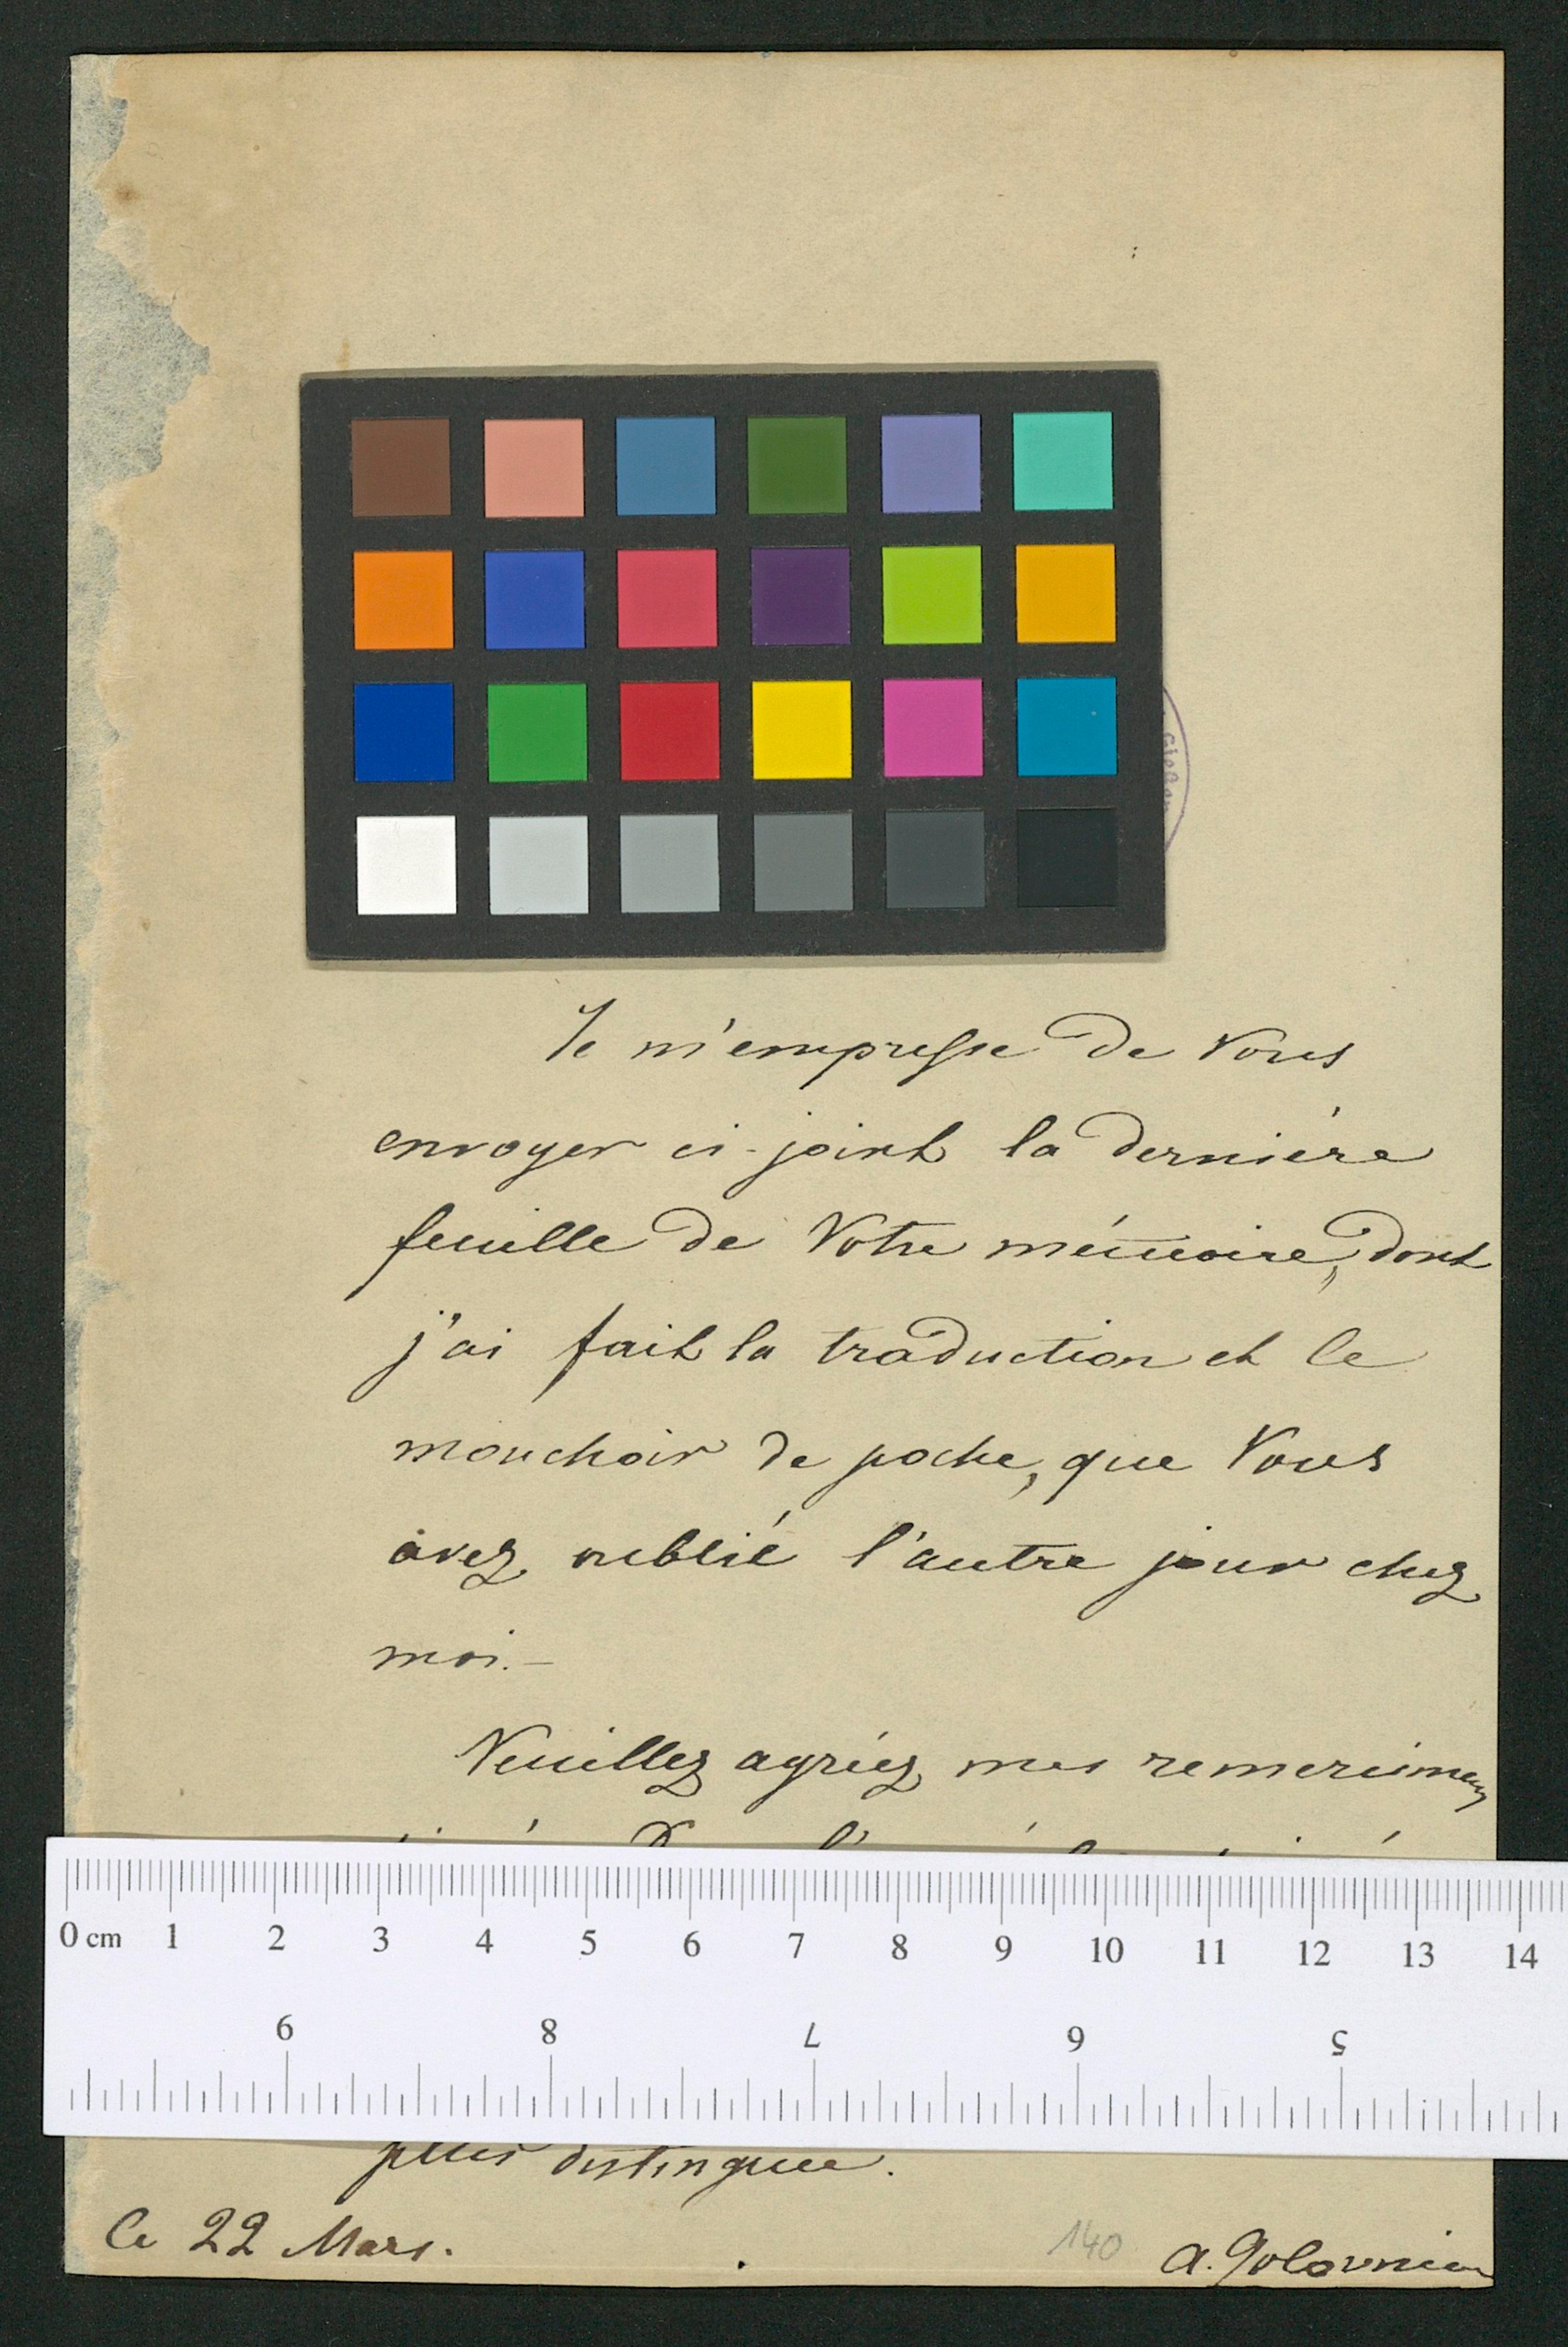 Je m'empresse de Vous
envoyer ci-joint la dernière
feuille de Votre mémoire, dont
j'ai fait la traduction et le
mouchoir de poche, que Vous
avez oublié l'autre jour chez
moi. —
Veuillez agréez mes
0 cm 1 2 3 4 5 6 7 8 9 10 11 12 13 14
9 8 7 6 5
plus distinguée.
Ce 22 Mars.
140
A. Golovnin